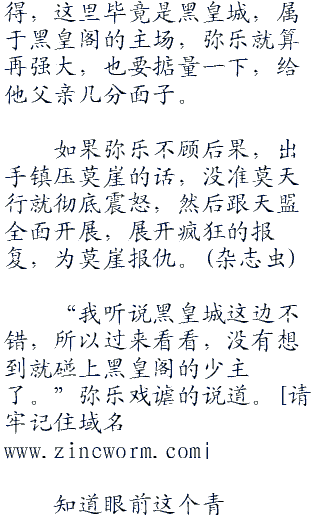 得，这里毕竟是黑皇城，属
于黑皇阁的主场，弥乐就算
再强大，也要掂量一下，给
他父亲几分面子。
如果弥乐不顾后果，出
手镇压莫崖的话，没准莫天
行就彻底震怒，然后跟天盟
全面开展，展开疯狂的报
复，为莫崖报仇。(杂志虫)
“我听说黑皇城这边不
错，所以过来看看，没有想
到就碰上黑皇阁的少主
了。”弥乐戏谑的说道。[请
牢记住域名
www.zincworm.com|
知道眼前这个青